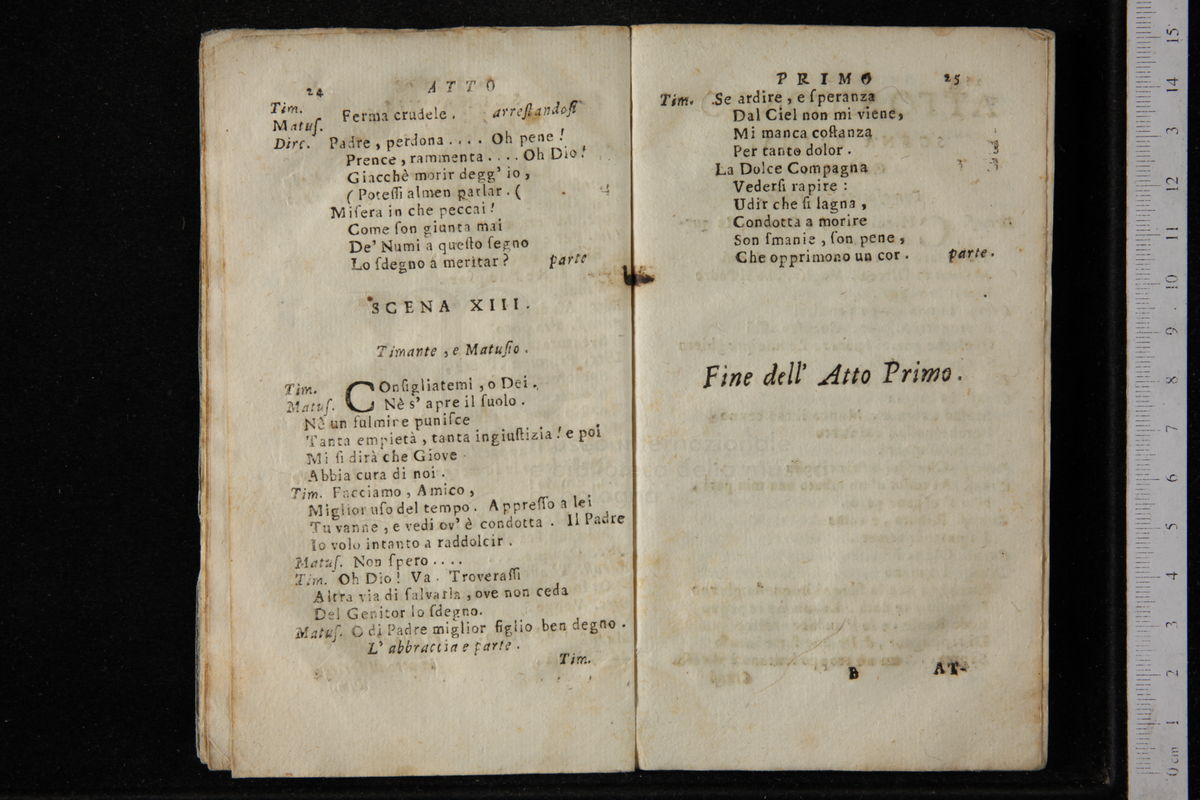 24 ATTO
Tim.
Matuſ. Ferma crudele. arreſtandoſi
Dirc. Padre, perdona.... Oh pene!
Prence, rammenta.... Oh Dio!
Giacchè morir degg' io,
(Poteſſi almen parlar. (
Miſera in che peccai!
Come ſon giunta mai
De' Numi a queſto ſegno
Lo ſdegno a meritar? parte
SCENA XIII.
Timante, e Matuſio.
Tim. COnſigliatemi, o Dei.
Matuſ. Nè s' apre il ſuolo.
Nè un fulmire puniſce
Tanta empietà, tanta ingiuſtizia! e poi
Mi ſi dirà che Giove
Abbia cura di noi.
Tim. Facciamo, Amico,
Miglior uſo del tempo. Appreſſo a lei
Tu vanne, e vedi ov' è condotta. Il Padre
Io volo intanto a raddolcir.
Matuſ. Non ſpero....
Tim. Oh Dio! Va. Troveraſſi
Altra via di ſalvarla, ove non ceda
Del Genitor lo ſdegno.
Matuſ. O di Padre miglior figlio ben degno.
L' abbraccia e parte.
Tim.
PRIMO 25
Tim. Se ardire, e ſperanza
Dal Ciel non mi viene,
Mi manca coſtanza
Per tanto dolor.
La Dolce Compagna
Vederſi rapire:
Udir che ſi lagna,
Condotta a morire
Son ſmanie, ſon pene,
Che opprimono un cor. parte.
Fine dell' Atto Primo.
B AT-
15
14
13
12
11
10
9
8
7
6
5
4
3
2
1
0 cm